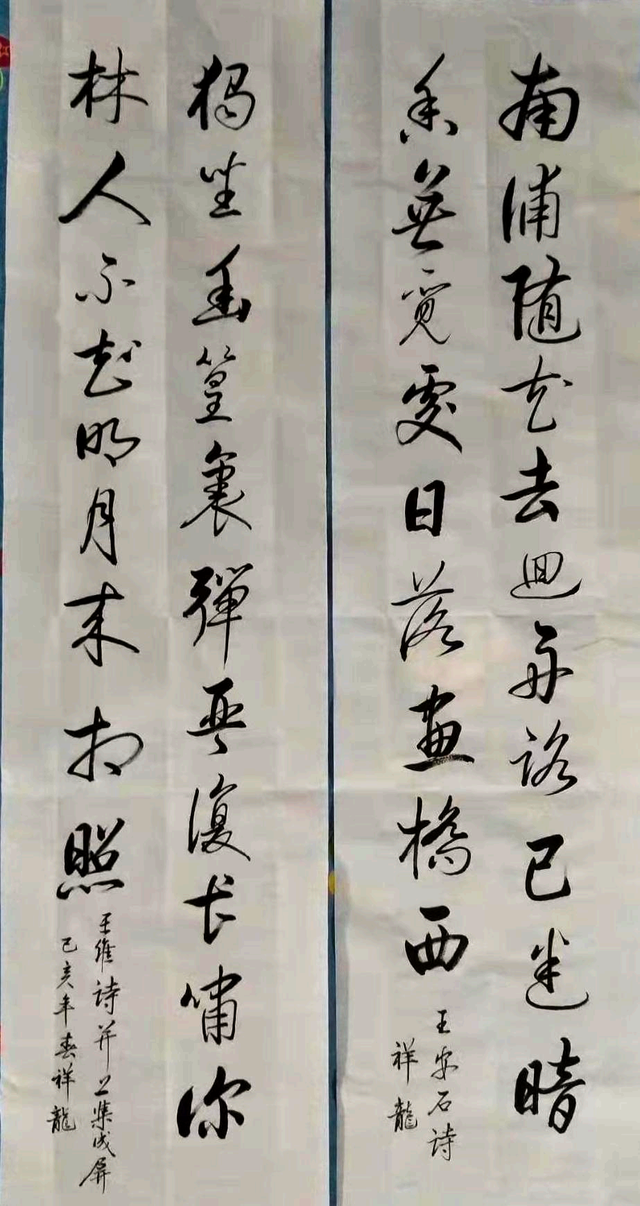 南浦随花去迴舟路已迷暗
香無覓處日落畫橋西
王安石詩
祥龍
獨坐幽篁裏彈琴復长嘯深
林人不知明月来相照
王維詩并上集成屏
己亥年春祥龍